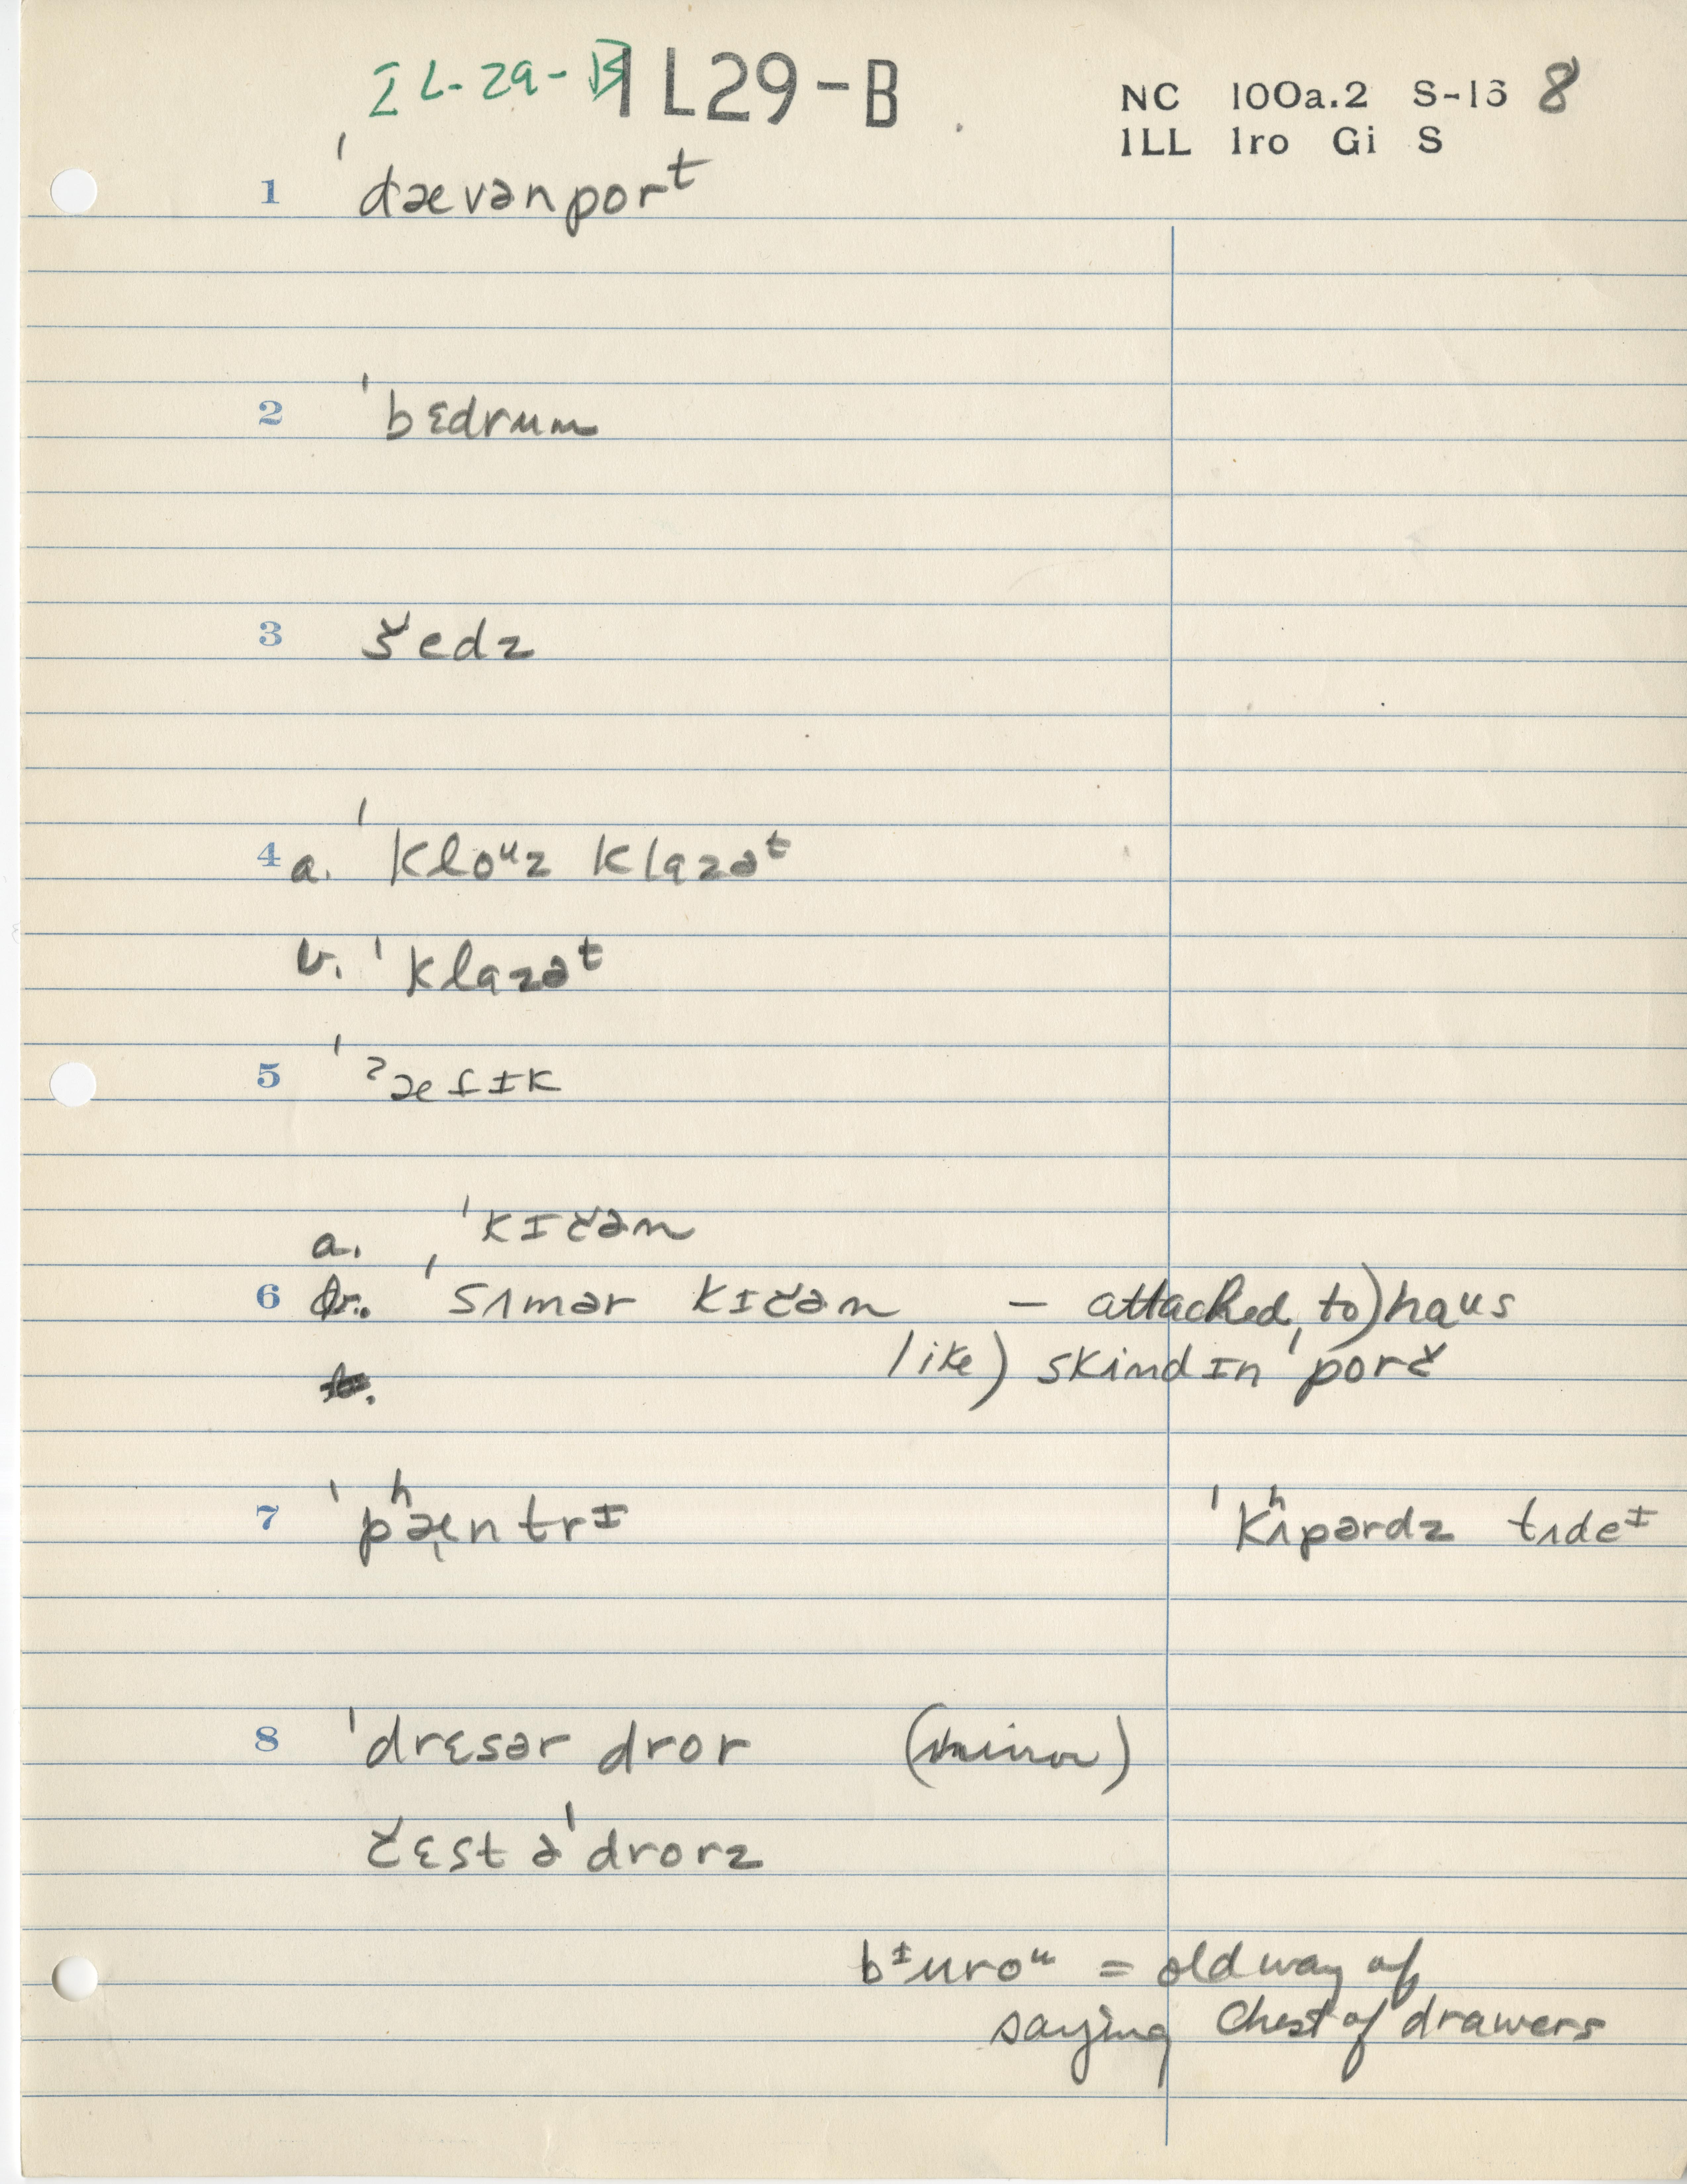 IL-29-B IL29-B NC 100a.2 S-16 8
ILL Iro Gi S
1 ˈdævənporᵗ
2 ˈbɛdrum
3 šedz
4 a. ˈkloᵘz klɑzəᵗ
b. ˈklɑzəᵗ
5 ˈˀæfɪk
a. ˈkɪčən
6 b. ˈsʌmər kɪčən – attached to) hɑus
like) skʌindɪn ˈporč
7 ˈpʰæntrɪ ˈkʰʌpərdz tʌdeᶦ
8 ˈdrɛsər dror (mirror)
čɛst əˈdrorz
bᶦuroᵘ = old way of
saying chest of drawers